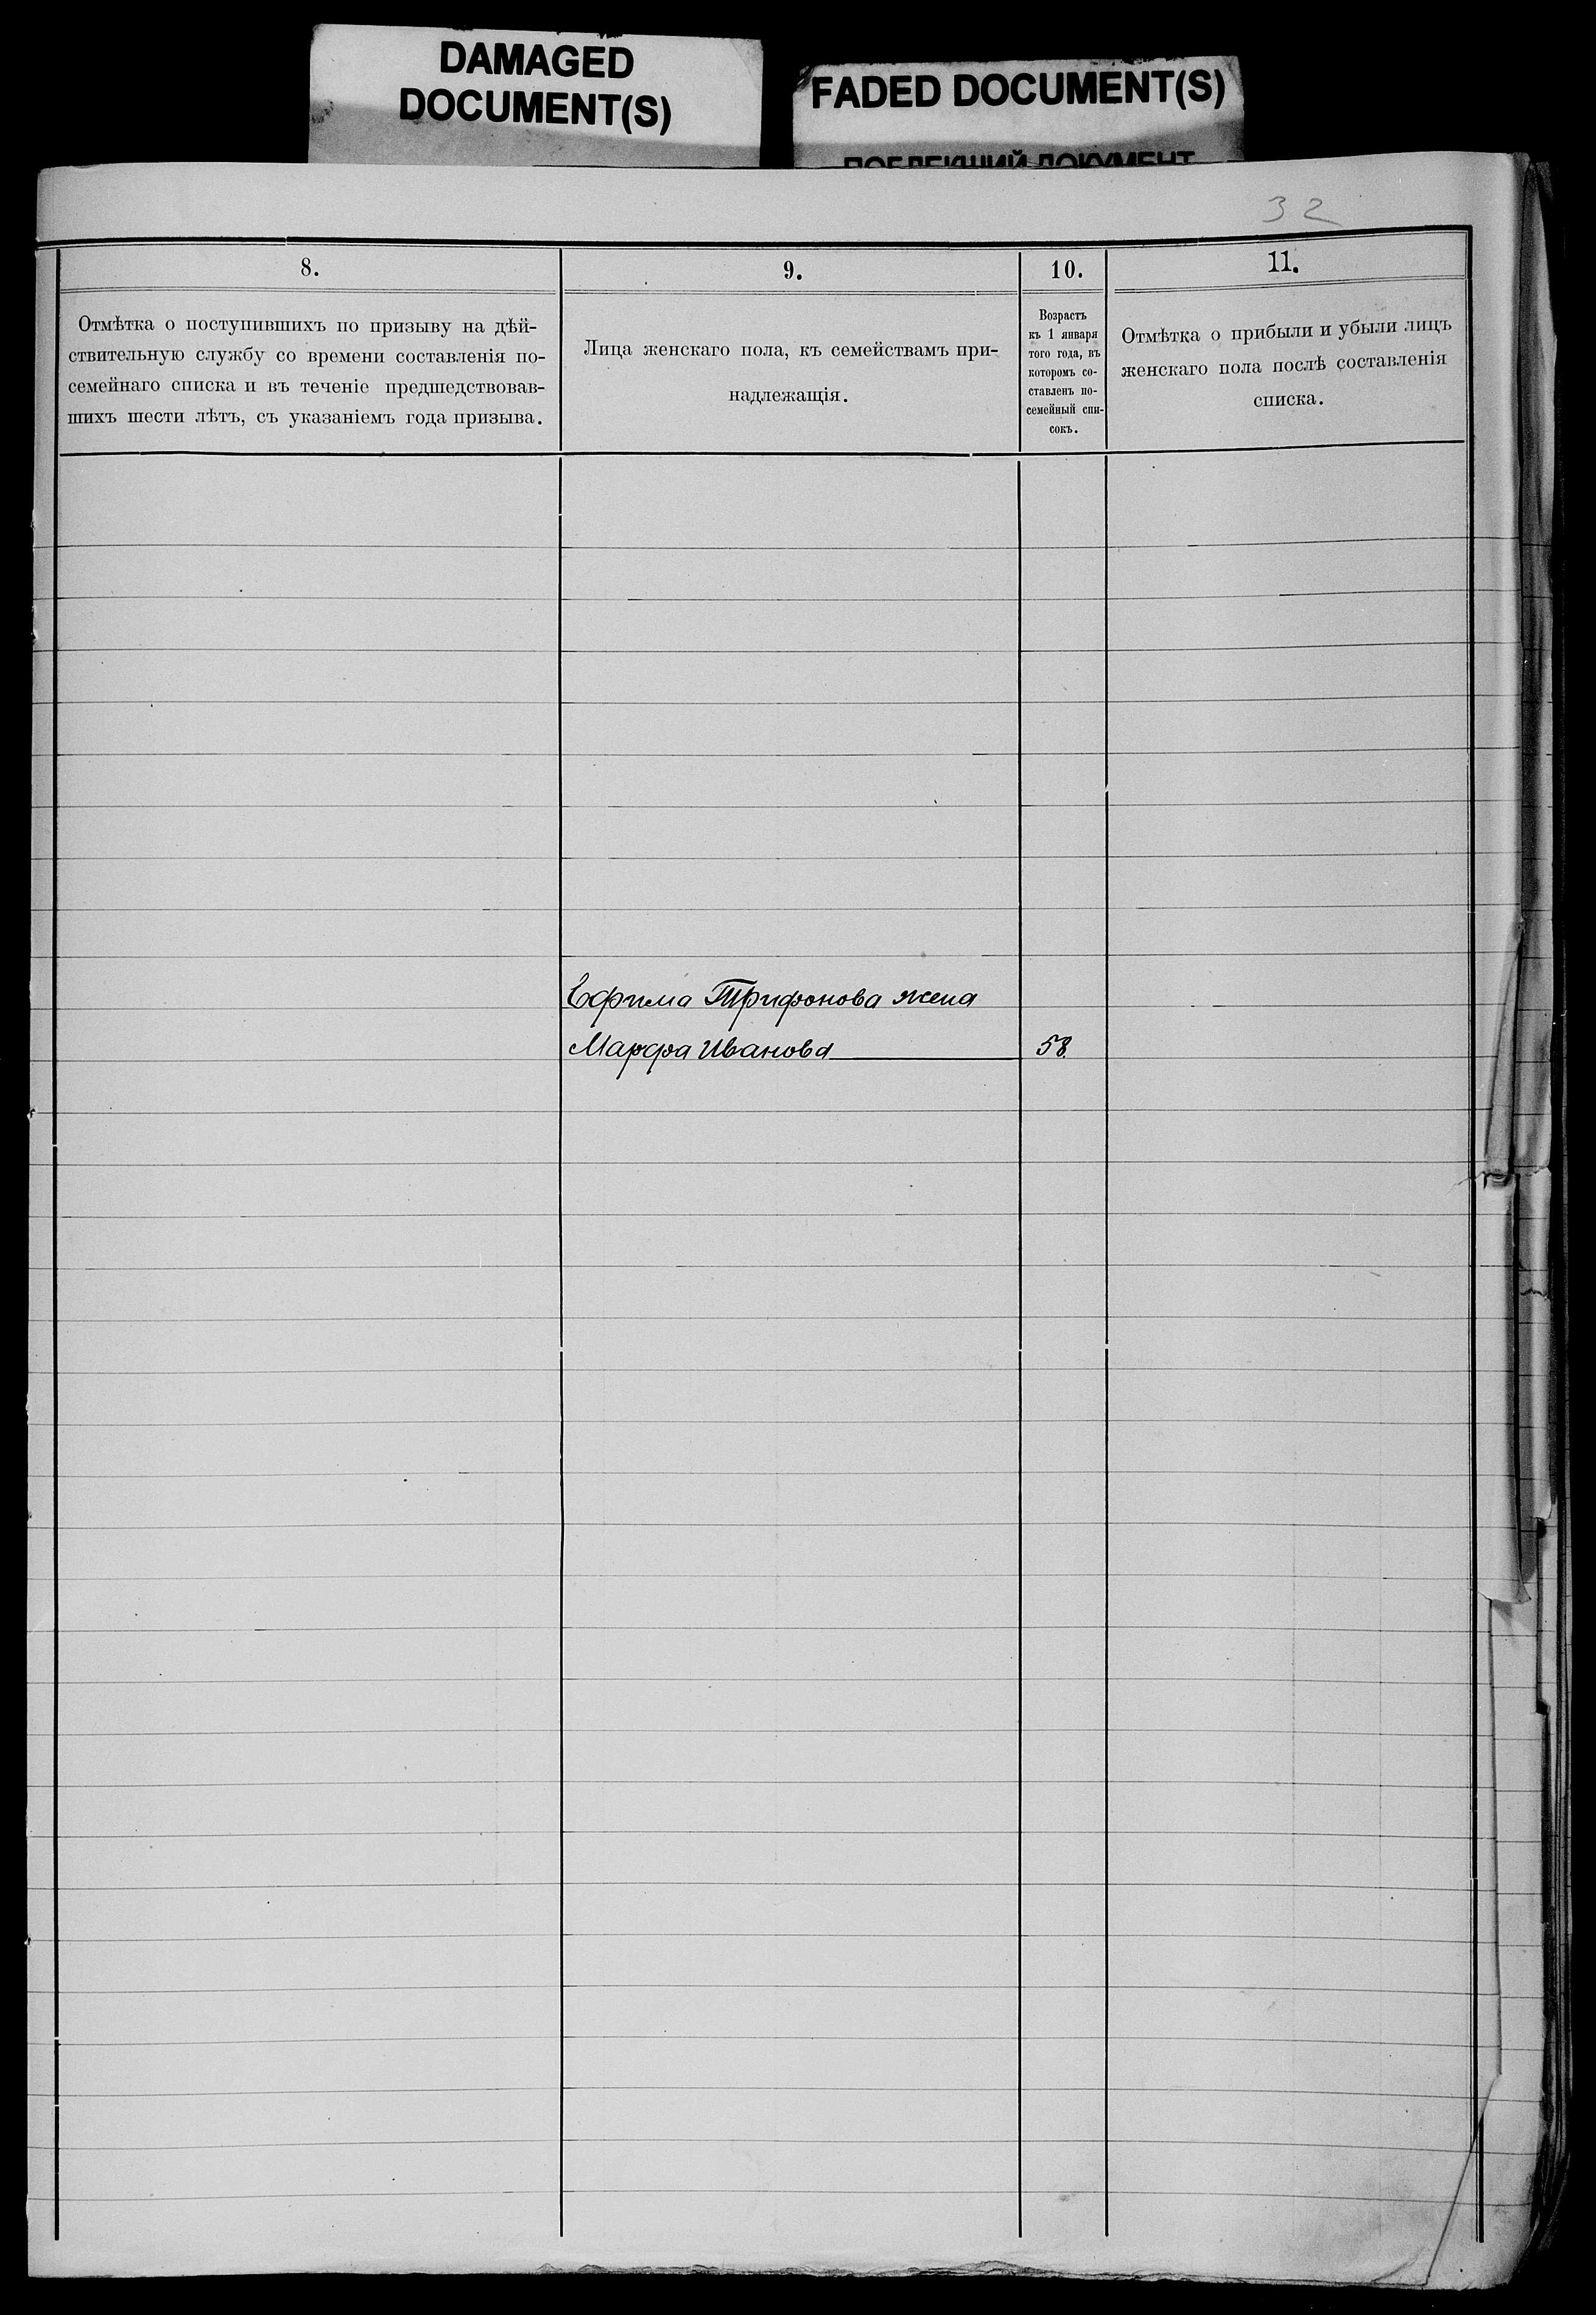 DAMAGED
DOCUMENT(S)
FADED DOCUMENT(S)
ПОБЛЕКШИЙ ДОКУМЕНТ
32
8.
Отмѣтка о поступившихъ по призыву на дѣй-
ствительную службу со времени составленія по-
семейнаго списка и въ теченіе предшедствовав-
шихъ шести лѣтъ, съ указаніемъ года призыва.
9.
Лица женскаго пола, къ семействамъ при-
надлежащія.
10.
Возрастъ
къ 1 января
того года, въ
которомъ со-
ставленъ по-
семейный спи-
сокъ.
11.
Отмѣтка о прибыли и убыли лицъ
женскаго пола послѣ составленія
списка.
Ефима Трифонова жена
Марфа Иванова 58.